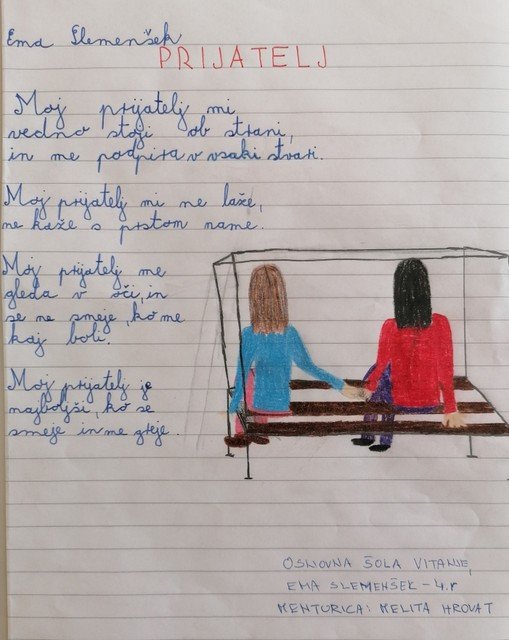 Ema Slemenšek
PRIJATELJ
Moj prijatelj mi
vedno stoji ob strani,
in me podpira v vsaki stvari.
Moj prijatelj mi ne laže,
ne kaže s prstom name.
Moj prijatelj me
gleda v oči, in
se ne smeje, ko me
kaj boli.
Moj prijatelj je
najboljši, ko se
smeje in me greje.
OSNOVNA ŠOLA VITANJE,
EMA SLEMENŠEK - 4.r
MENTORICA: MELITA HROVAT